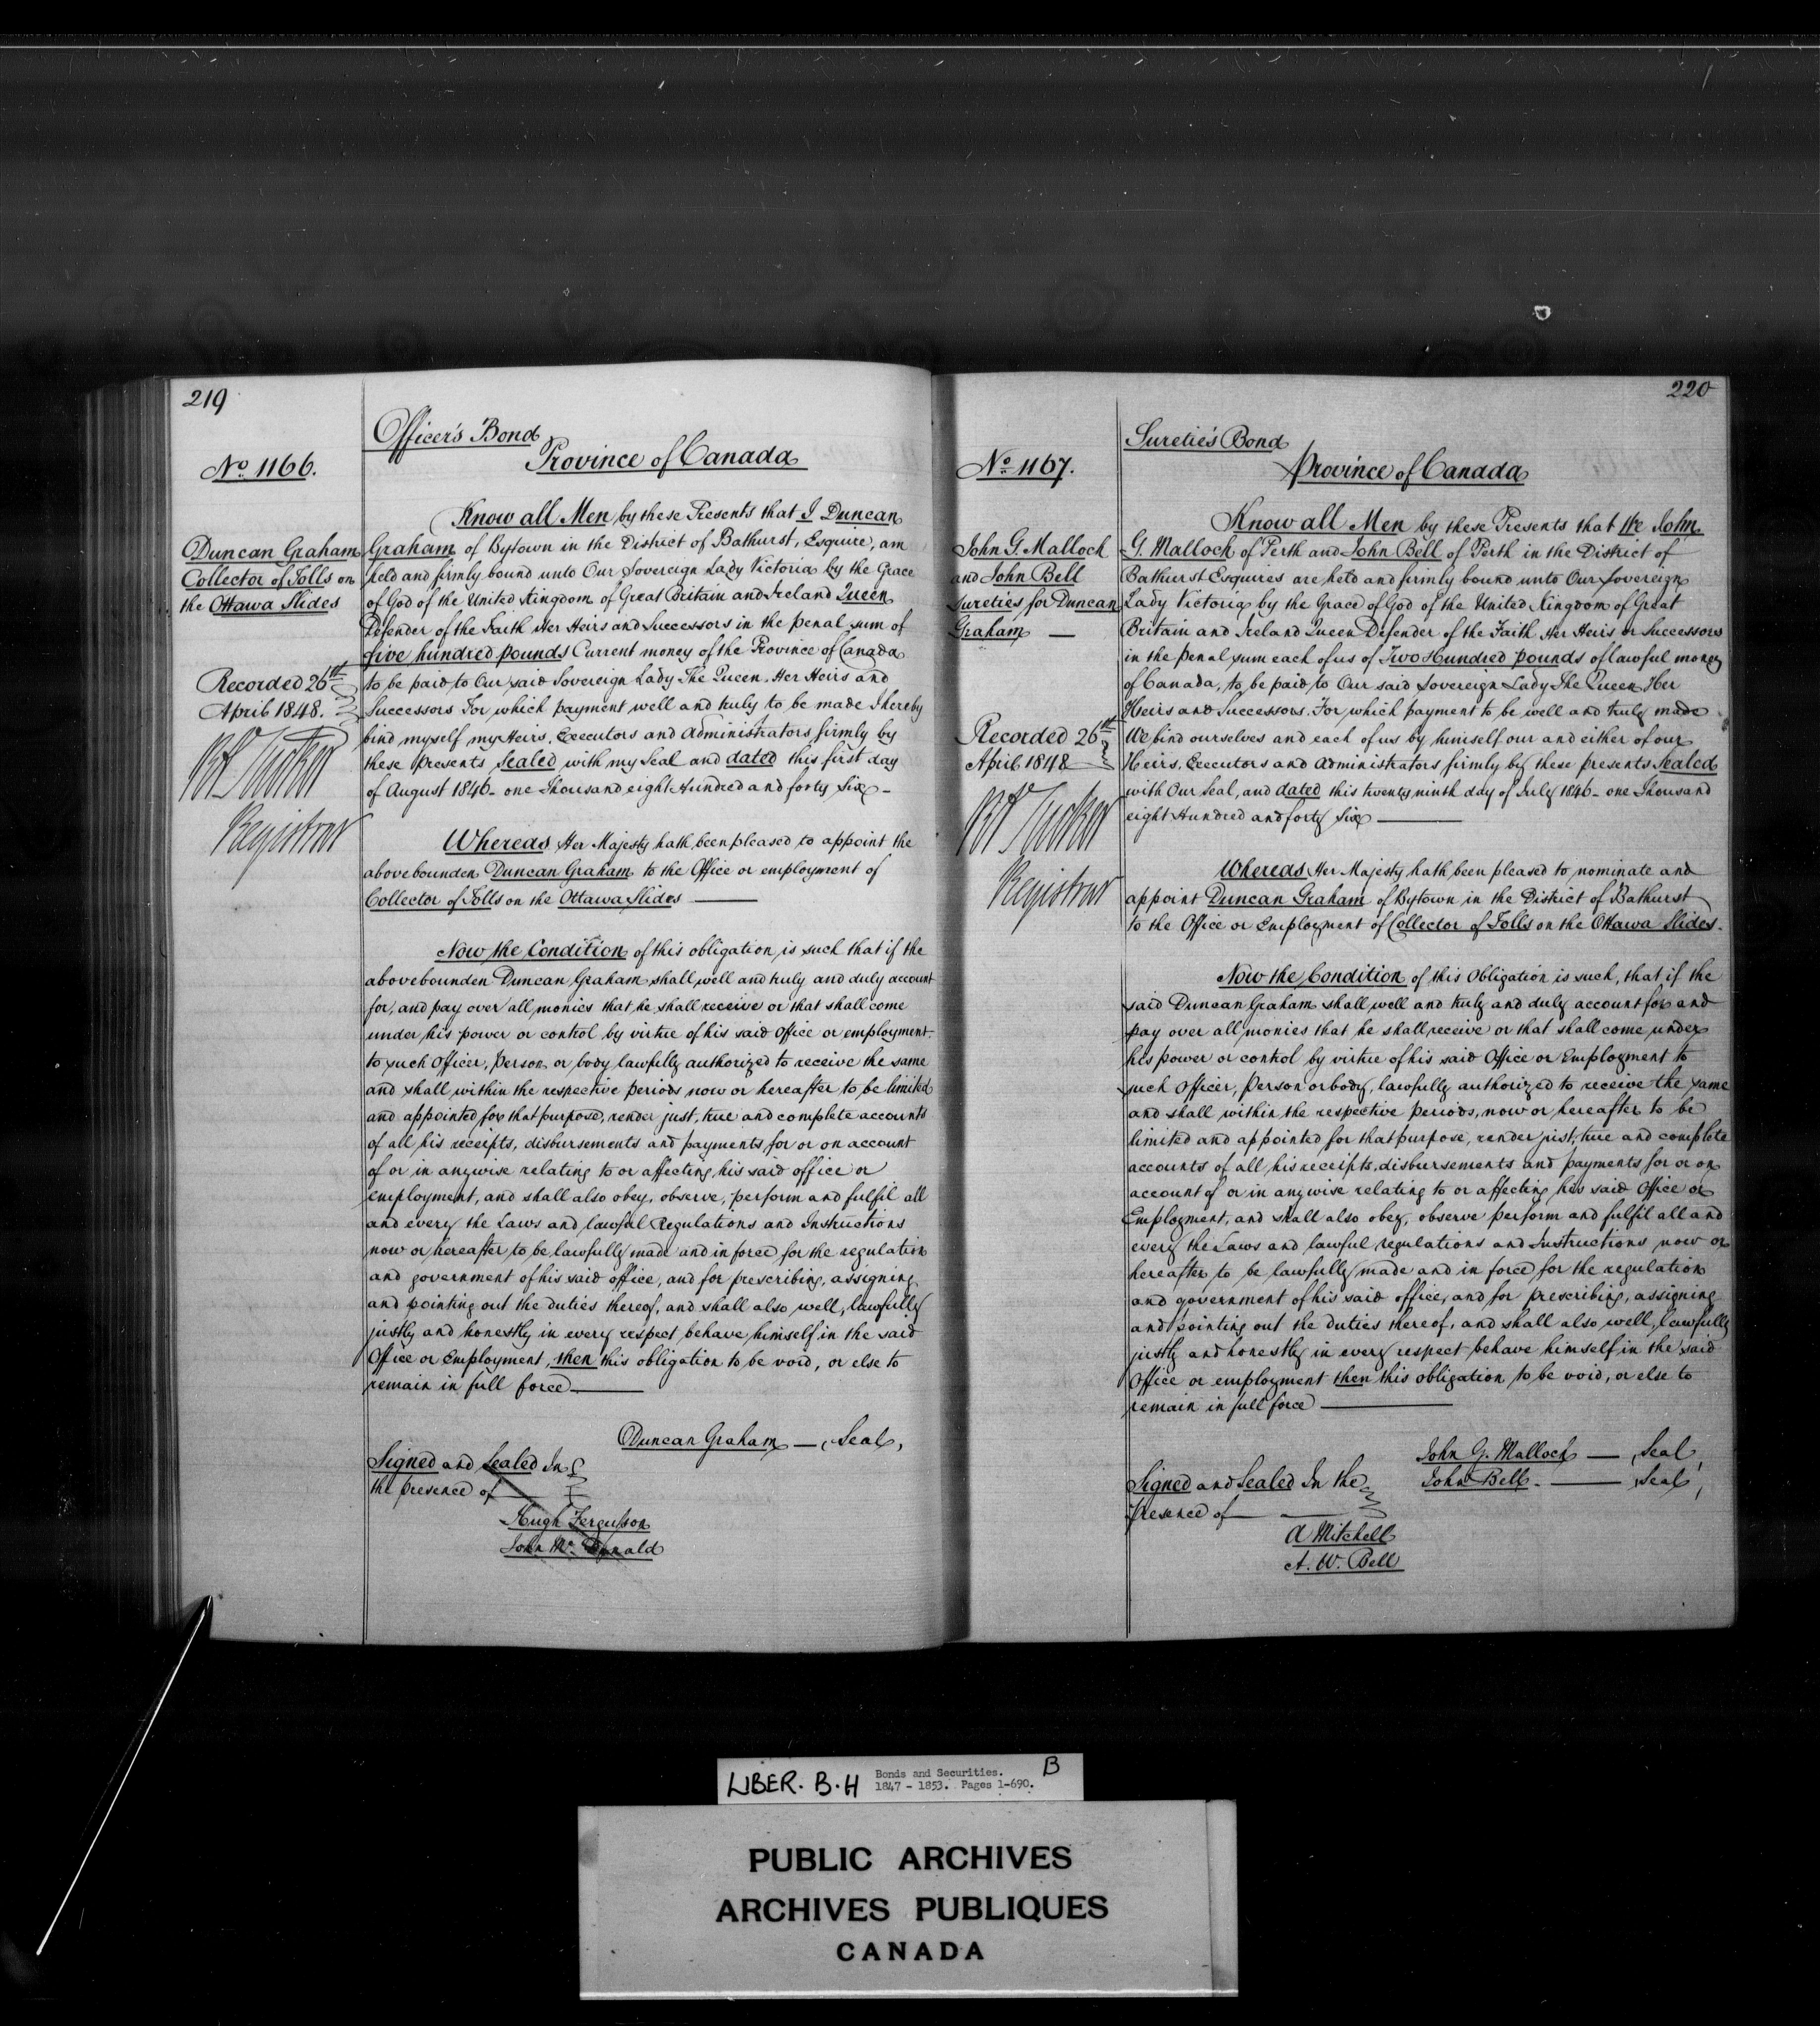 219
Officer's Bond
No. 1166.
Province of Canada
Know all Men by these Presents that I Duncan
Duncan Graham
Collector of Tolls on
the Ottawa Slides
Graham of Bytown in the District of Bathurst, Esquire, am
held and firmly bound unto Our Sovereign Lady Victoria by the Grace
of God of the United Kingdom of Great Britain and Ireland Queen
Defender of the Faith Her Heirs and Successors in the penal sum of
five hundred pounds Current money of the Province of Canada
to be paid to Our said Sovereign Lady The Queen, Her Heirs and
Successors For which payment well and truly to be made I hereby
bind myself my Heirs, Executors and Administrators firmly by
these presents Sealed with my Seal and dated this first day
of August 1846 - one Thousand eight Hundred and forty Six -
Recorded 26th
April 1848.
Tucker
Registrar
Whereas Her Majesty hath been pleased to appoint the
abovebounden Duncan Graham to the Office or employment of
Collector of Tolls on the Ottawa Slides
Now the Condition of this obligation is such that if the
abovebounden Duncan Graham shall well and truly and duly account
for, and pay over all monies that he shall receive or that shall come
under his power or control by virtue of his said office or employment
to such Officer, Person or body lawfully authorized to receive the same
and shall within the respective periods now or hereafter to be limited
and appointed for that purpose, render just, true and complete accounts
of all his receipts, disbursements and payments for or on account
of or in anywise relating to or affecting his said office or
employment, and shall also obey, observe, perform and fulfil all
and every the Laws and lawful Regulations and Instructions
now or hereafter to be lawfully made and in force for the regulation
and government of his said office, and for prescribing, assigning
and pointing out the duties thereof, and shall also well, lawfully
justly and honestly in every respect behave himself in the said
Office or Employment, then this obligation to be void, or else to
remain in full force
Duncan Graham — Seal,
Signed and Sealed In
the presence of
Hugh Fergusson
John McDonald
220
Suretie's Bond
No. 1167.
Province of Canada
Know all Men by these Presents that We John
John G. Malloch
and John Bell
Sureties for Duncan
Graham —
G. Malloch of Perth and John Bell of Perth in the District of
Bathurst Esquires are held and firmly bound unto Our Sovereign
Lady Victoria by the Grace of God of the United Kingdom of Great
Britain and Ireland Queen Defender of the Faith Her Heirs or Successors
in the penal sum each of us of Two Hundred pounds of lawful money
of Canada, to be paid to Our said Sovereign Lady The Queen Her
Heirs and Successors. For which payment to be well and truly made
We bind ourselves and each of us by himself our and either of our
Heirs, Executors and Administrators firmly by these presents Sealed
with Our Seal, and dated this twenty ninth day of July 1846 - one Thousand
eight Hundred and forty Six
Recorded 26th
April 1848
Tucker
Registrar
Whereas Her Majesty hath been pleased to nominate and
appoint Duncan Graham of Bytown in the District of Bathurst
to the Office or Employment of Collector of Tolls on the Ottawa Slides.
Now the Condition of this Obligation is such, that if the
said Duncan Graham shall well and truly and duly account for and
pay over all monies that he shall receive or that shall come under
his power or control by virtue of his said Office or Employment to
such Officer, Person or body, lawfully authorized to receive the same
and shall within the respective periods, now or hereafter to be
limited and appointed for that purpose, render just, true and complete
accounts of all his receipts, disbursements and payments for or on
account of or in anywise relating to or affecting his said Office or
Employment, and shall also obey, observe perform and fulfil all and
every the Laws and lawful regulations and Instructions now or
hereafter to be lawfully made and in force for the regulation
and government of his said office, and for prescribing, assigning
and pointing out the duties thereof, and shall also well, lawfully
justly and honestly in every respect behave himself in the said
Office or employment then this obligation to be void, or else to
remain in full force
John G. Malloch — Seal,
John Bell. — Seal,
Signed and Sealed In the
Presence of
A Mitchell
A. W. Bell
LIBER. B.H
Bonds and Securities. B
1847 - 1853. Pages 1-690.
PUBLIC ARCHIVES
ARCHIVES PUBLIQUES
CANADA